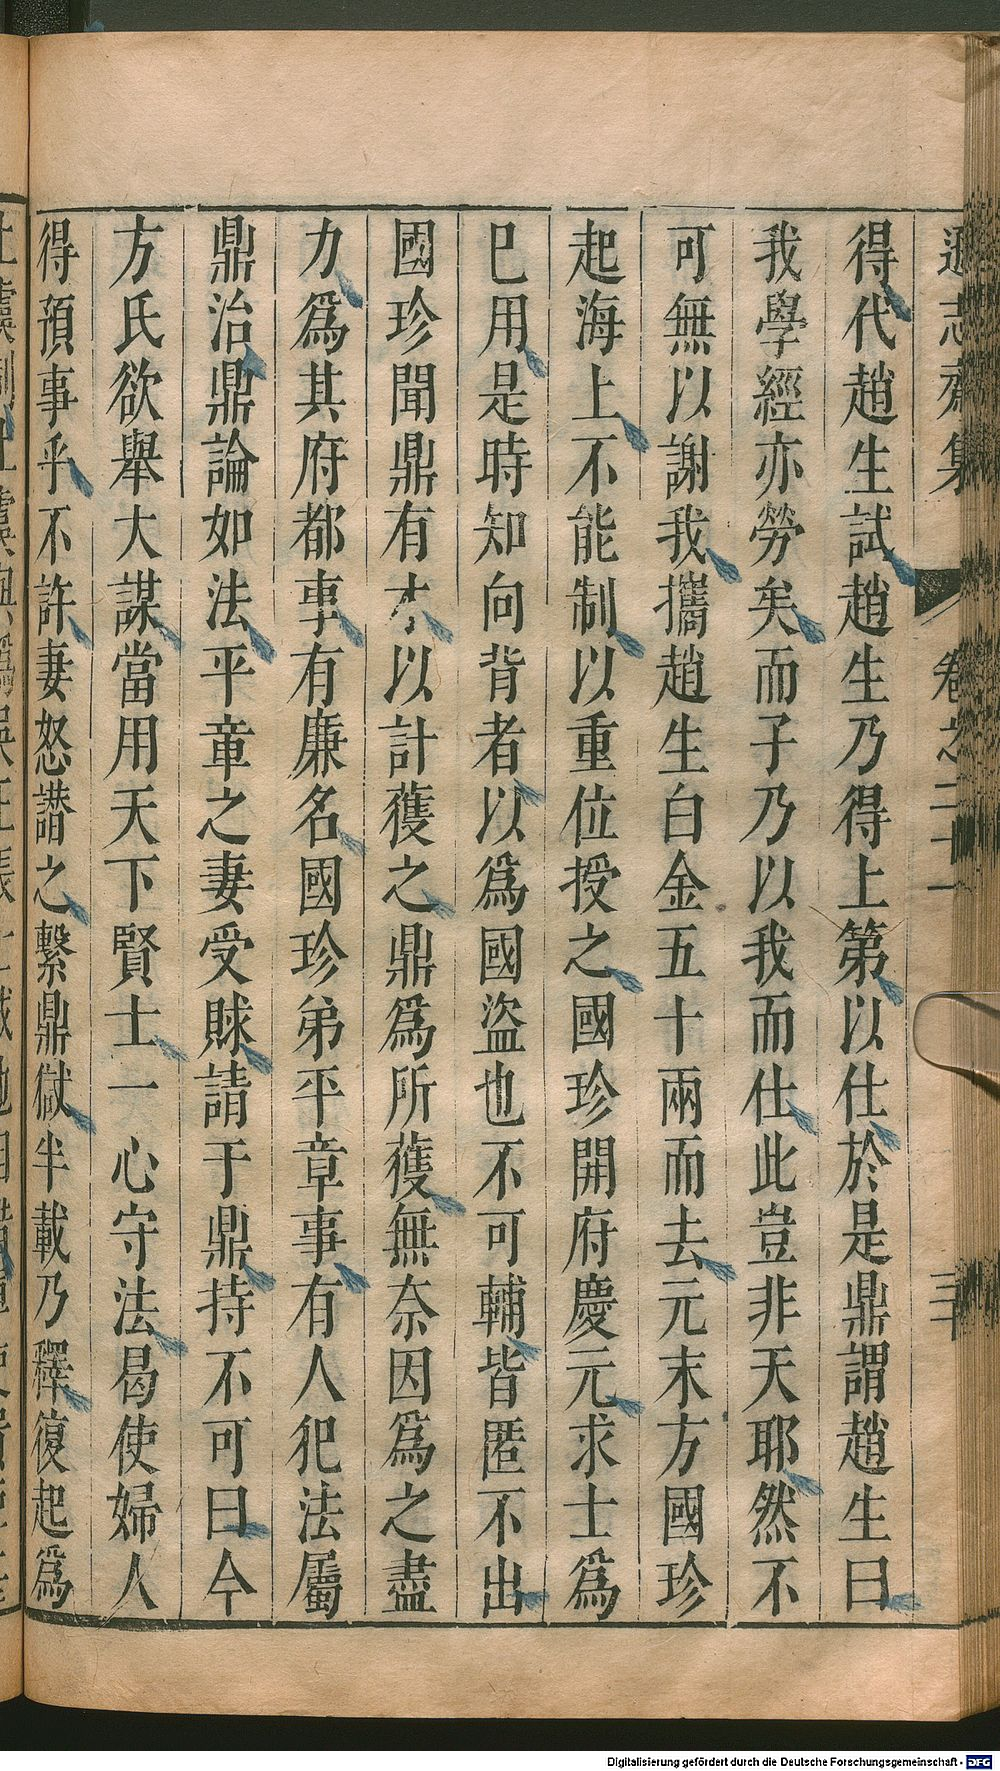 遜志齋集 卷之二十一 三十
得代趙生試趙生乃得上第以仕於是鼎謂趙生曰
我學經亦勞矣而子乃以我而仕此豈非天耶然不
可無以謝我攜趙生白金五十兩而去元末方國珍
起海上不能制以重位授之國珍開府慶元求士爲
巳用是時知向背者以爲國盜也不可輔皆匿不出
國珍聞鼎有才以計獲之鼎爲所獲無奈因爲之盡
力爲其府都事有廉名國珍弟平章事有人犯法屬
鼎治鼎論如法平章之妻受賕請于鼎持不可曰今
方氏欲舉大謀當用天下賢士一心守法曷使婦人
得預事乎不許妻怒譖之繫鼎獄半載乃釋復起爲
Digitalisierung gefördert durch die Deutsche Forschungsgemeinschaft - DFG